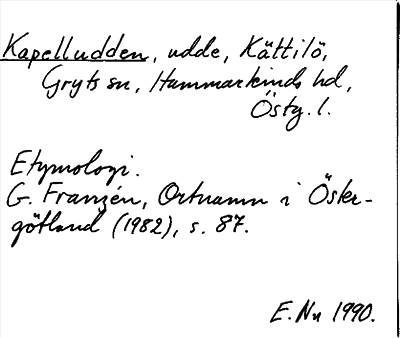 Kapelludden, udde, Kättilö,
Gryts sn, Hammarkinds hd,
Östg. l.
Etymologi.
G. Franzén, Ortnamn i Öster-
götland (1982), s. 87.
E. Nn 1990.